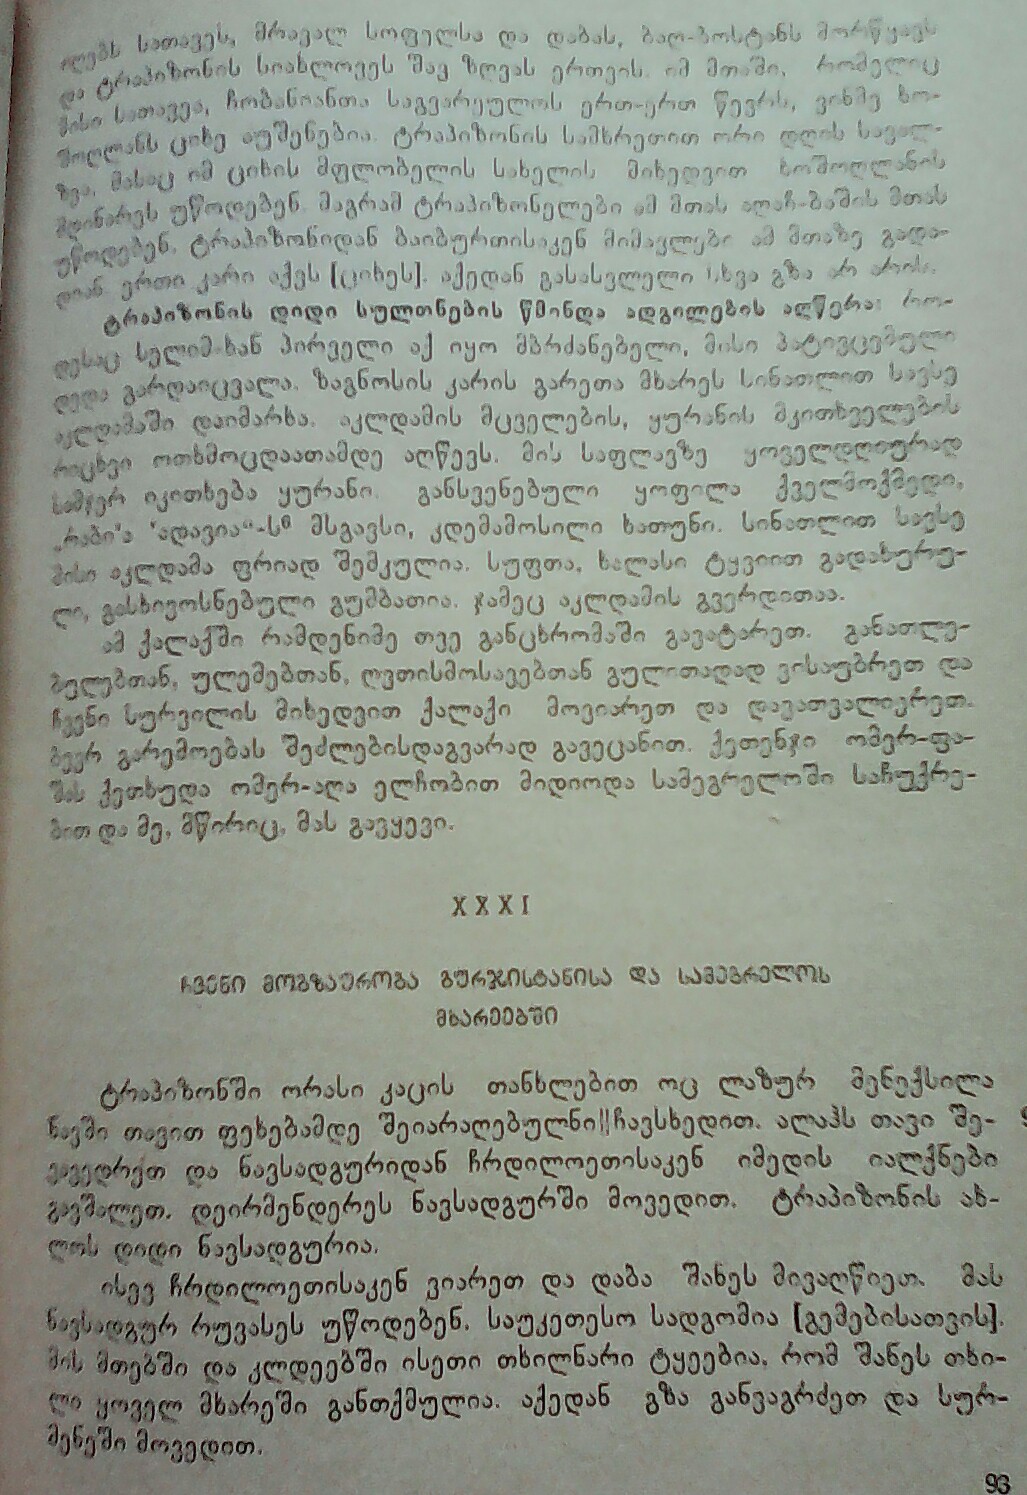 იღებს სათავეს, მრავალ სოფელსა და დაბას, ბაღ-ბოსტანს მორწყავს
და ტრაპიზონის სიახლოვეს შავ ზღვას ერთვის. იმ მთაში, რომელიც
მისი სათავეა, ჩობანიანთა საგვარეულოს ერთ-ერთ წევრს, ვინმე ხო-
შოღლანს ციხე აუშენებია. ტრაპიზონის სამხრეთით ორი დღის სავალ-
ზეა, მასაც იმ ციხის მფლობელის სახელის მიხედვით ხოშოღლანის
მდინარეს უწოდებენ. მაგრამ ტრაპიზონელები ამ მთას აღაჩ-ბაშის მთას
უწოდებენ. ტრაპიზონიდან ბაიბურთისაკენ მიმავლები ამ მთაზე გადა-
დიან. ერთი კარი აქვს [ციხეს]. აქედან გასასვლელი სხვა გზა არ არის.
ტრაპიზონის დიდი სულთნების წმინდა ადგილების აღწერა: რო-
დესაც სელიმ-ხან პირველი აქ იყო მბრძანებელი, მისი პატივცემული
დედა გარდაიცვალა. ზაგნოსის კარის გარეთა მხარეს სინათლით სავსე
აკლდამაში დაიმარხა. აკლდამის მცველების, ყურანის მკითხველების
რიცხვი ოთხმოცდაათამდე აღწევს. მის საფლავზე ყოველდღიურად
სამჯერ იკითხება ყურანი. განსვენებული ყოფილა ქველმოქმედი,
„რაბი‘ა ‘ადავია“-ს⁰ მსგავსი, კდემამოსილი ხათუნი. სინათლით სავსე
მისი აკლდამა ფრიად შემკულია. სუფთა, ხალასი ტყვიით გადახურუ-
ლი, გასხივოსნებული გუმბათია. ჯამეც აკლდამის გვერდითაა.
ამ ქალაქში რამდენიმე თვე განცხრომაში გავატარეთ. განათლე-
ბულებთან, ულემებთან, ღვთისმოსავებთან გულითადად ვისაუბრეთ და
ჩვენი სურვილის მიხედვით ქალაქი მოვიარეთ და დავათვალიერეთ.
ბევრ გარემოებას შეძლებისდაგვარად გავეცანით. ქეთენჯი ომერ-ფა-
შის ქეთხუდა ომერ-აღა ელჩობით მიდიოდა სამეგრელოში საჩუქრე-
ბით და მე, მწირიც, მას გავყევი.
XXXI
ჩვენი მოგზაურობა გურჯისტანისა და სამეგრელოს
მხარეებში
ტრაპიზონში ორასი კაცის თანხლებით ოც ლაზურ მენექსილა
ნავში თავით ფეხებამდე შეიარაღებულნი||ჩავსხედით. ალაჰს თავი შე-
ვავედრეთ და ნავსადგურიდან ჩრდილოეთისაკენ იმედის იალქნები
გავშალეთ. დეირმენდერეს ნავსადგურში მოვედით. ტრაპიზონის ახ-
ლოს დიდი ნავსადგურია.
ისევ ჩრდილოეთისაკენ ვიარეთ და დაბა შანეს მივაღწიეთ. მას
ნავსადგურ რუვასეს უწოდებენ. საუკეთესო სადგომია [გემებისათვის].
მის მთებში და კლდეებში ისეთი თხილნარი ტყეებია, რომ შანეს თხი-
ლი ყოველ მხარეში განთქმულია. აქედან გზა განვაგრძეთ და სურ-
მენეში მოვედით.
93